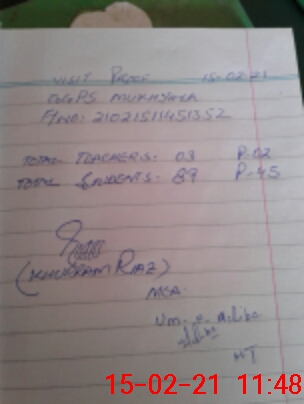 VISIT PROOF 15-02-21
GGPS MUKHYALA
F/NO: 21021511451352
TOTAL TEACHERS: 03 P-02
TOTAL STUDENTS: 89 P-45
(KHURRAM RIAZ)
MEA
Um-e-aliba
HT
15-02-21 11:48